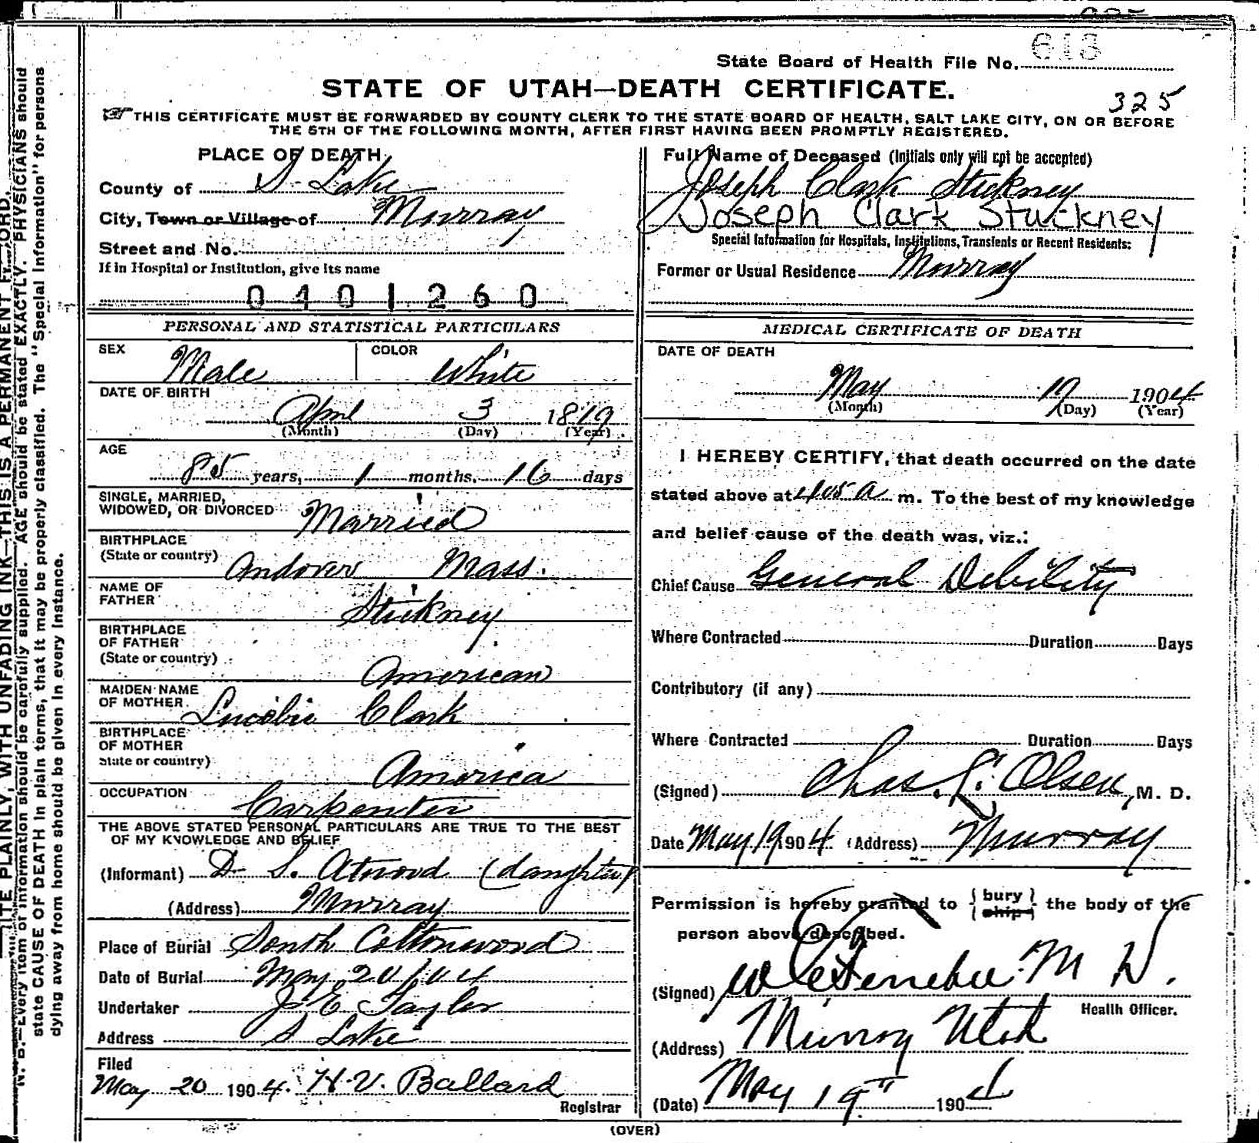 State Board of Health File No. 618
STATE OF UTAH—DEATH CERTIFICATE.
325
THIS CERTIFICATE MUST BE FORWARDED BY COUNTY CLERK TO THE STATE BOARD OF HEALTH, SALT LAKE CITY, ON OR BEFORE
THE 5TH OF THE FOLLOWING MONTH, AFTER FIRST HAVING BEEN PROMPTLY REGISTERED.
PLACE OF DEATH
County of S. Lake
City, Town or Village of Murray
Street and No.
If in Hospital or Institution, give its name
0401260
PERSONAL AND STATISTICAL PARTICULARS
SEX Male COLOR White
DATE OF BIRTH
April 3 1819
(Month) (Day) (Year)
AGE
85 years, 1 months, 16 days
SINGLE, MARRIED,
WIDOWED, OR DIVORCED Married
BIRTHPLACE
(State or country) Andover Mass.
NAME OF
FATHER Stickney
BIRTHPLACE
OF FATHER
(State or country) American
MAIDEN NAME
OF MOTHER Clark
BIRTHPLACE
OF MOTHER
State or country) America
OCCUPATION Carpenter
THE ABOVE STATED PERSONAL PARTICULARS ARE TRUE TO THE BEST
OF MY KNOWLEDGE AND BELIEF
(Informant) D. S. Atwood (daughter)
(Address) Murray
Place of Burial South Cottonwood
Date of Burial May 20/04
Undertaker J. E. Taylor
Address S Lake
Filed
May 20 1904. H. V. Ballard
Registrar
Full Name of Deceased (Initials only will not be accepted)
Joseph Clark Stickney
Joseph Clark Stuckney
Special Information for Hospitals, Institutions, Transients or Recent Residents:
Former or Usual Residence Murray
MEDICAL CERTIFICATE OF DEATH
DATE OF DEATH
May 19 1904
(Month) (Day) (Year)
I HEREBY CERTIFY, that death occurred on the date
stated above at 4:05 a m. To the best of my knowledge
and belief cause of the death was, viz.:
Chief Cause General Debility
Where Contracted Duration Days
Contributory (if any)
Where Contracted Duration Days
(Signed) Chas. Olsen, M. D.
Date May 19 1904. (Address) Murray
Permission is hereby granted to { bury } the body of the
{ ship }
person above described.
(Signed) M D.
Health Officer.
(Address) Murray Utah
(Date) May 19" 1904
(OVER)
N. B.—Every item of information should be carefully supplied. AGE should be stated EXACTLY. PHYSICIANS should
state CAUSE OF DEATH in plain terms, that it may be properly classified. The "Special Information" for persons
dying away from home should be given in every instance.